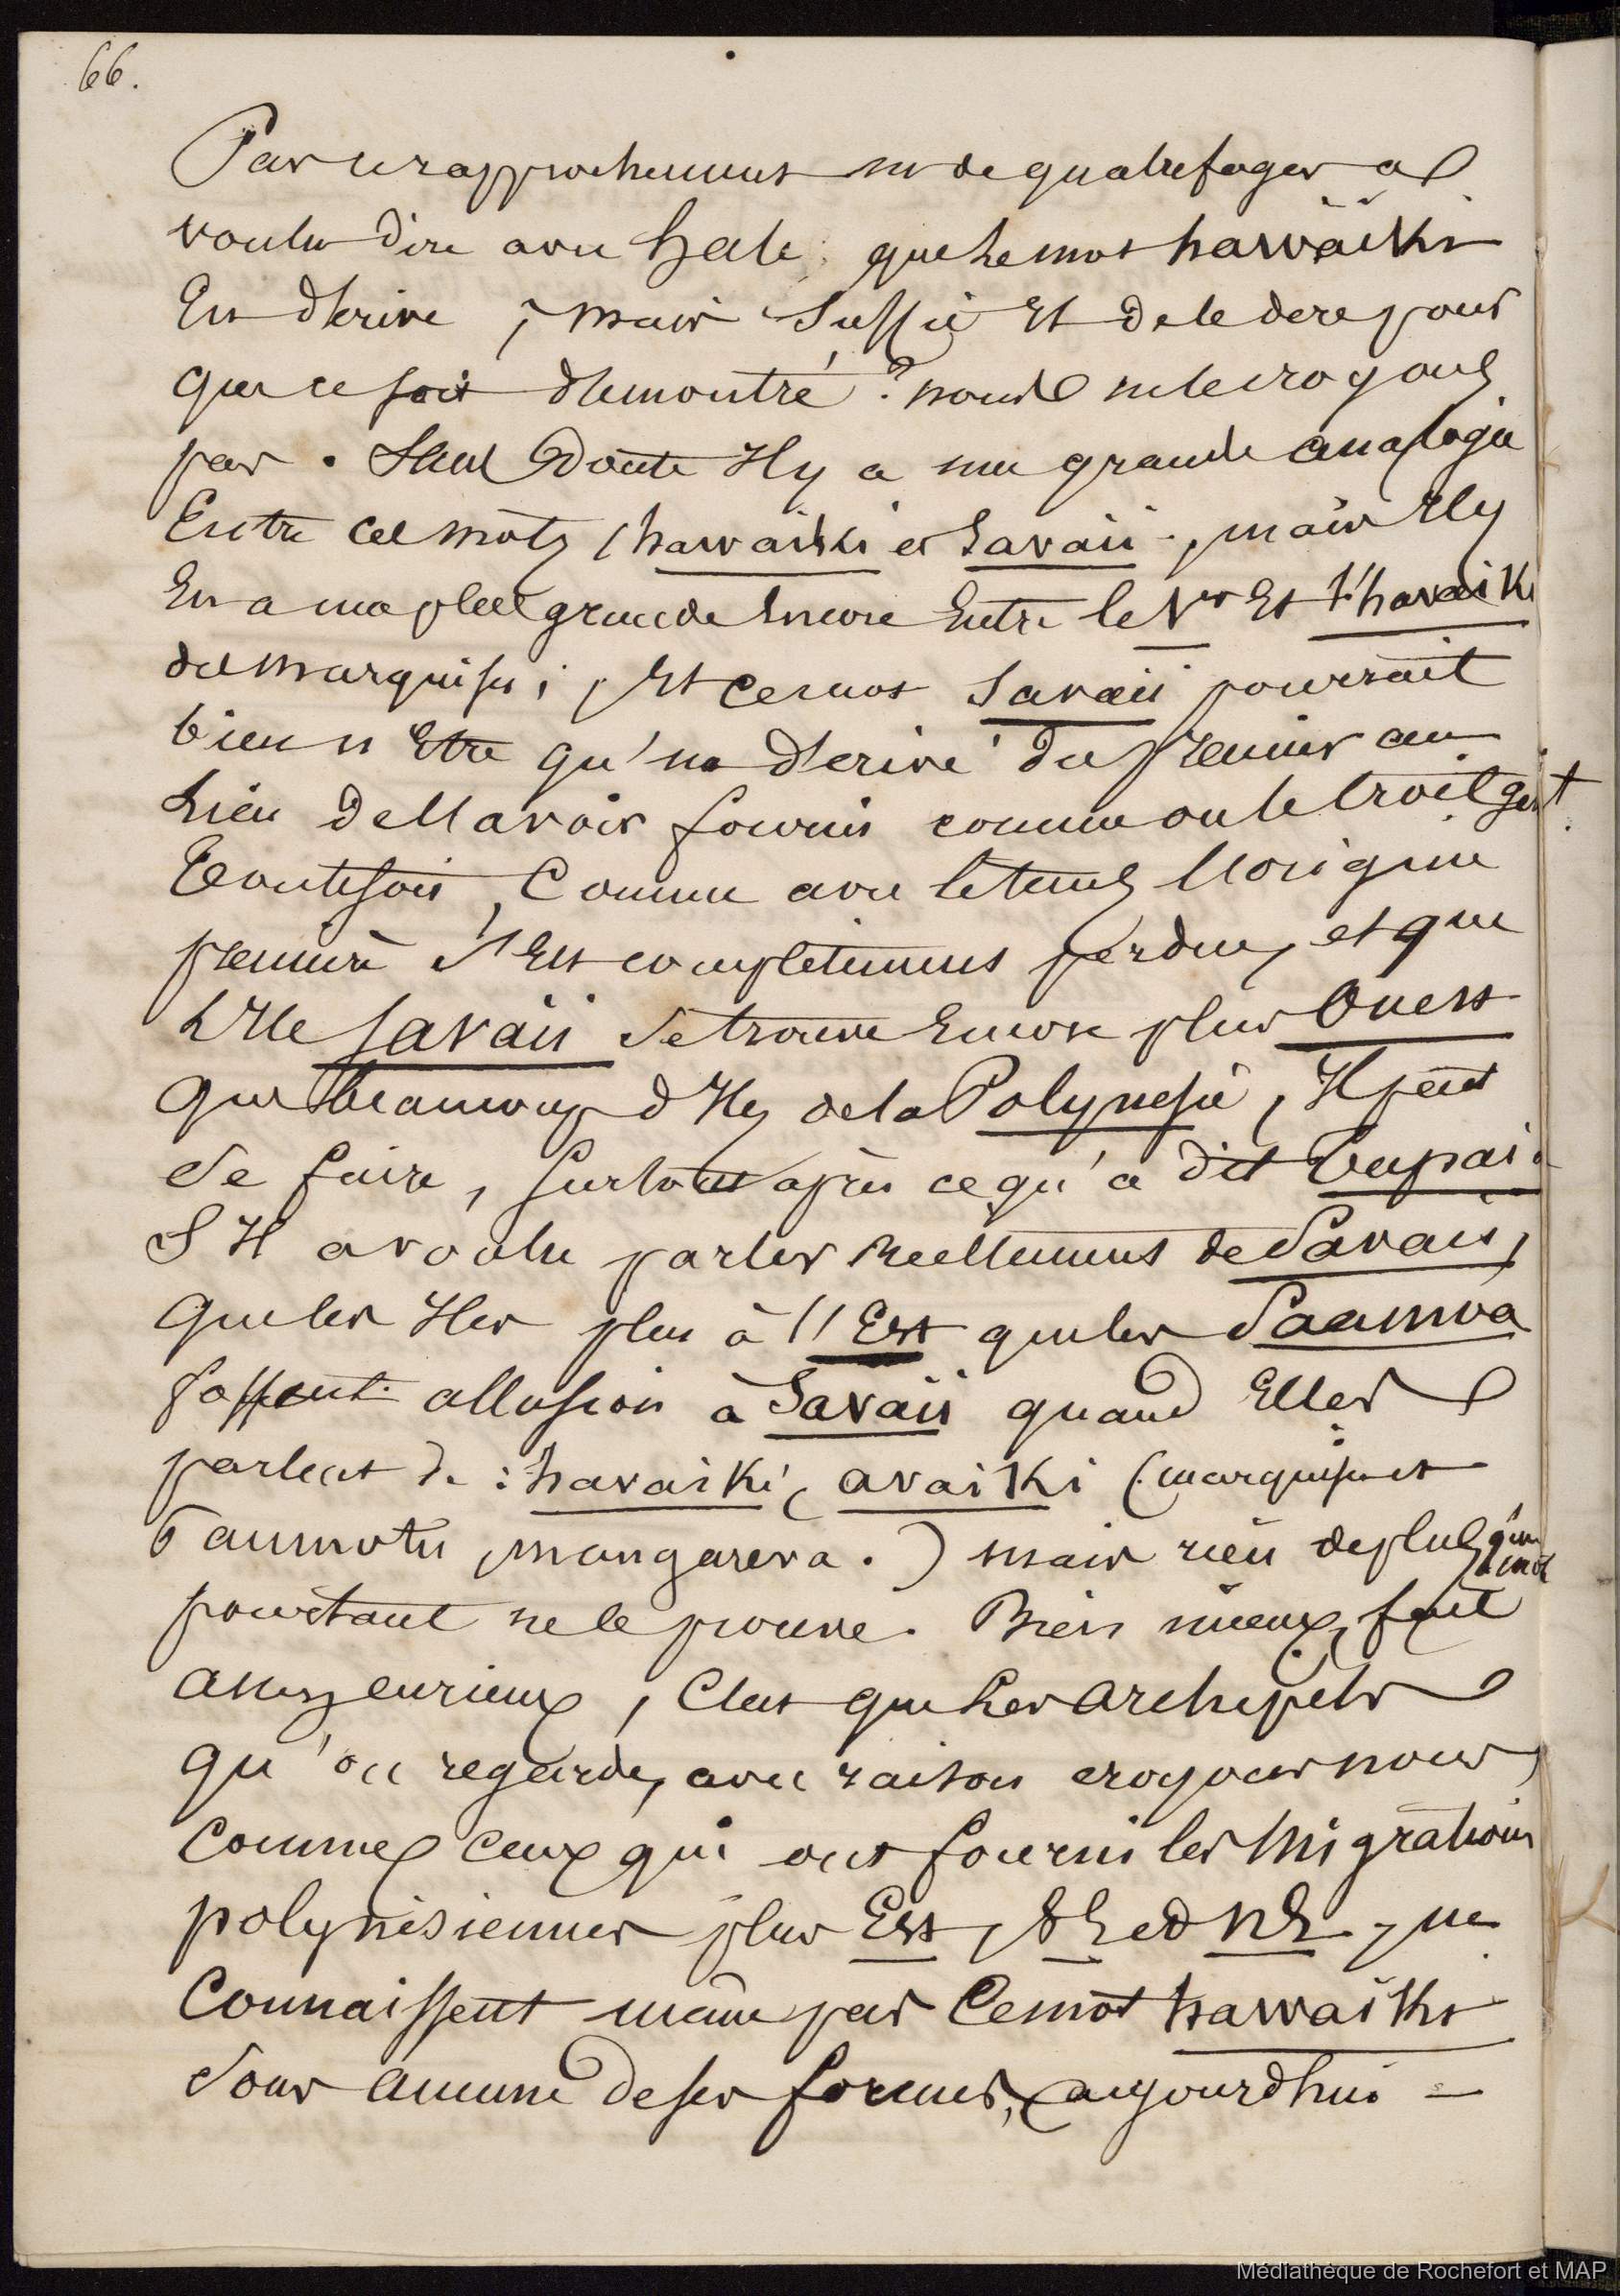 66.
Par ce rapprochement mr de quatrefages a
voulu dire avec hale que le mot hawaïki
En dérive, mais suffit Il de le dire pour
que ce soit démontré ? nous ne le croyons
pas. Sans Doute Il y a une grande analogie
Entre ces mots, hawaiki et Savaii, mais Il y
En a une plus grande Encore Entre le 1er Et l'havaiki
des marquises ; Et ce mot Savaii pourrait
bien n'Etre qu'un dérivé du premier au
Lieu de l'avoir fourni comme on le croit gent.
Toutefois, Comme avec le tems l'origine
première s'Est complètement perdue, et que
L'Ile Savaii se trouve Encore plus Ouest
que beaucoup d'Iles de la Polynésie, Il peut
se faire, surtout après ce qu'a dit Tupaia
S'Il a voulu parler réellement de Savaii,
que les Iles plus à l'Est que les Saamoa
fassent allusion à Savaii quand Elles
parlent de : havaiki, avaiki (marquises et
Taumotu, mangareva.) mais rien de plus qu'un mot
pourtant ne le prouve. Bien mieux, fait
assez curieux, C'est que Les archipels
qu'on regarde, avec raison croyons nous,
Comme ceux qui ont fourni les Migrations
polynésiennes plus Est, SE et NE, ne
Connaissent même pas Ce mot hawaïki
sous aucune de ses formes, aujourdhui —
Médiathèque de Rochefort et MAP